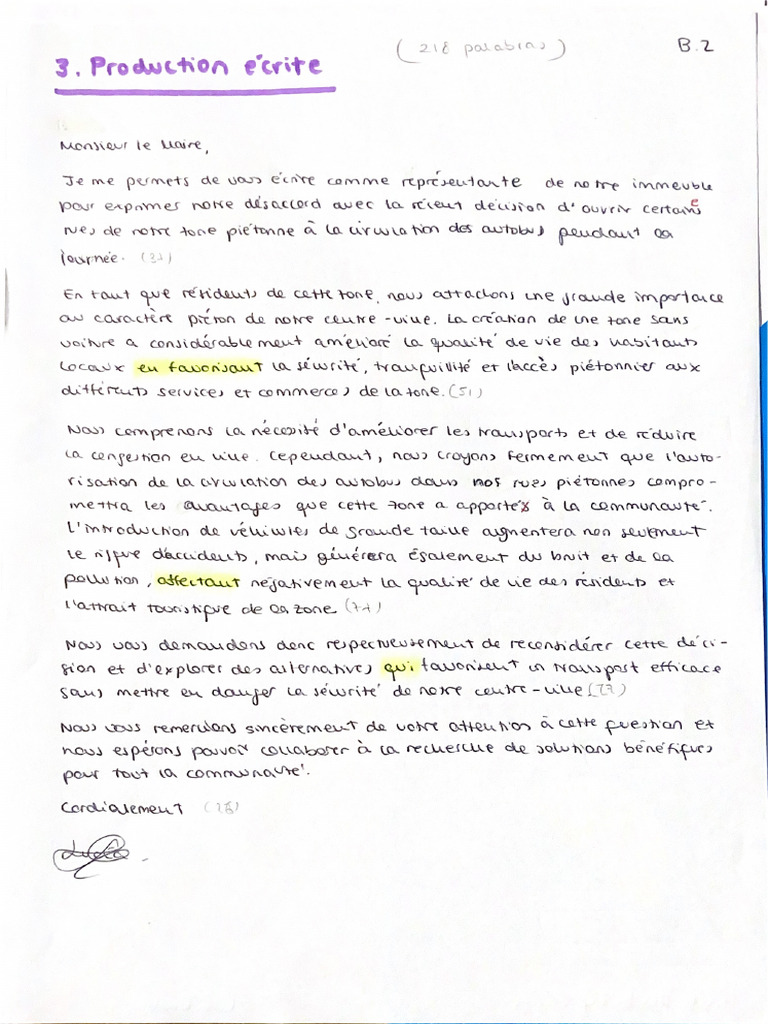 (218 palabras)
B.2
3. Production écrite
Monsieur le Maire,
Je me permets de vous écrire comme représentante de notre immeuble
pour exprimer notre désaccord avec la récent décision d'ouvrir certaines
rues de notre zone piétonne à la circulation des autobus pendant la
journée. (37)
En tant que résidents de cette zone, nous attachons une grande importance
au caractère piéton de notre centre-ville. La création de une zone sans
voiture a considérablement amélioré la qualité de vie des habitants
locaux en favorisant la sécurité, tranquillité et l'accès piétonnier aux
différents services et commerces de la zone. (51)
Nous comprenons la nécessité d'améliorer les transports et de réduire
la congestion en ville. Cependant, nous croyons fermement que l'auto-
risation de la circulation des autobus dans nos rues piétonnes compro-
mettra les avantages que cette zone a apporté à la communauté.
L'introduction de véhicules de grande taille augmentera non seulement
le risque d'accidents, mais générera également du bruit et de la
pollution, affectant négativement la qualité de vie des résidents et
l'attrait touristique de la zone. (77)
Nous vous demandons donc respectueusement de reconsidérer cette déci-
sion et d'explorer des alternatives qui favorisent un transport efficace
sans mettre en danger la sécurité de notre centre-ville (27)
Nous vous remercions sincèrement de votre attention à cette question et
nous espérons pouvoir collaborer à la recherche de solutions bénéfiques
pour tout la communauté.
Cordialement (26)